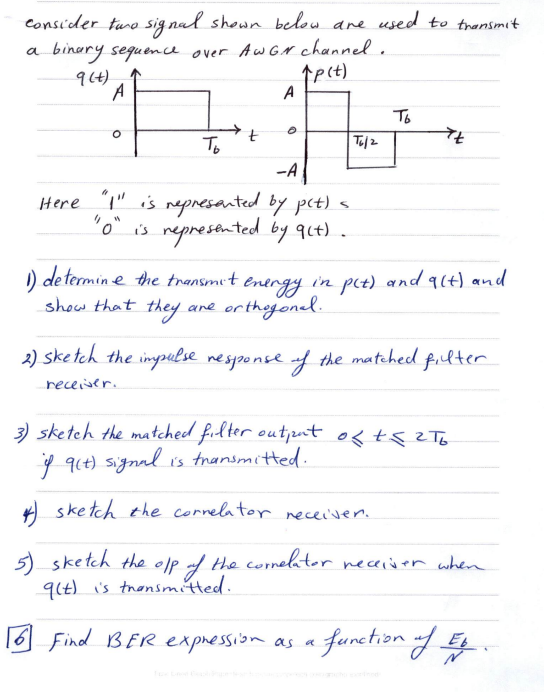 consider two signal shown below are used to transmit
a binary sequence over AWGN channel.
q(t)
A
0
Tb
t
p(t)
A
0
-A
Tb/2
Tb
t
Here "1" is represented by p(t) &
"0" is represented by q(t).
1) determine the transmit energy in p(t) and q(t) and
show that they are orthogonal.
2) sketch the impulse response of the matched filter
receiver.
3) sketch the matched filter output 0 ≤ t ≤ 2Tb
if q(t) signal is transmitted.
4) sketch the correlator receiver.
5) sketch the o/p of the correlator receiver when
q(t) is transmitted.
6 Find BER expression as a function of Eb/N.